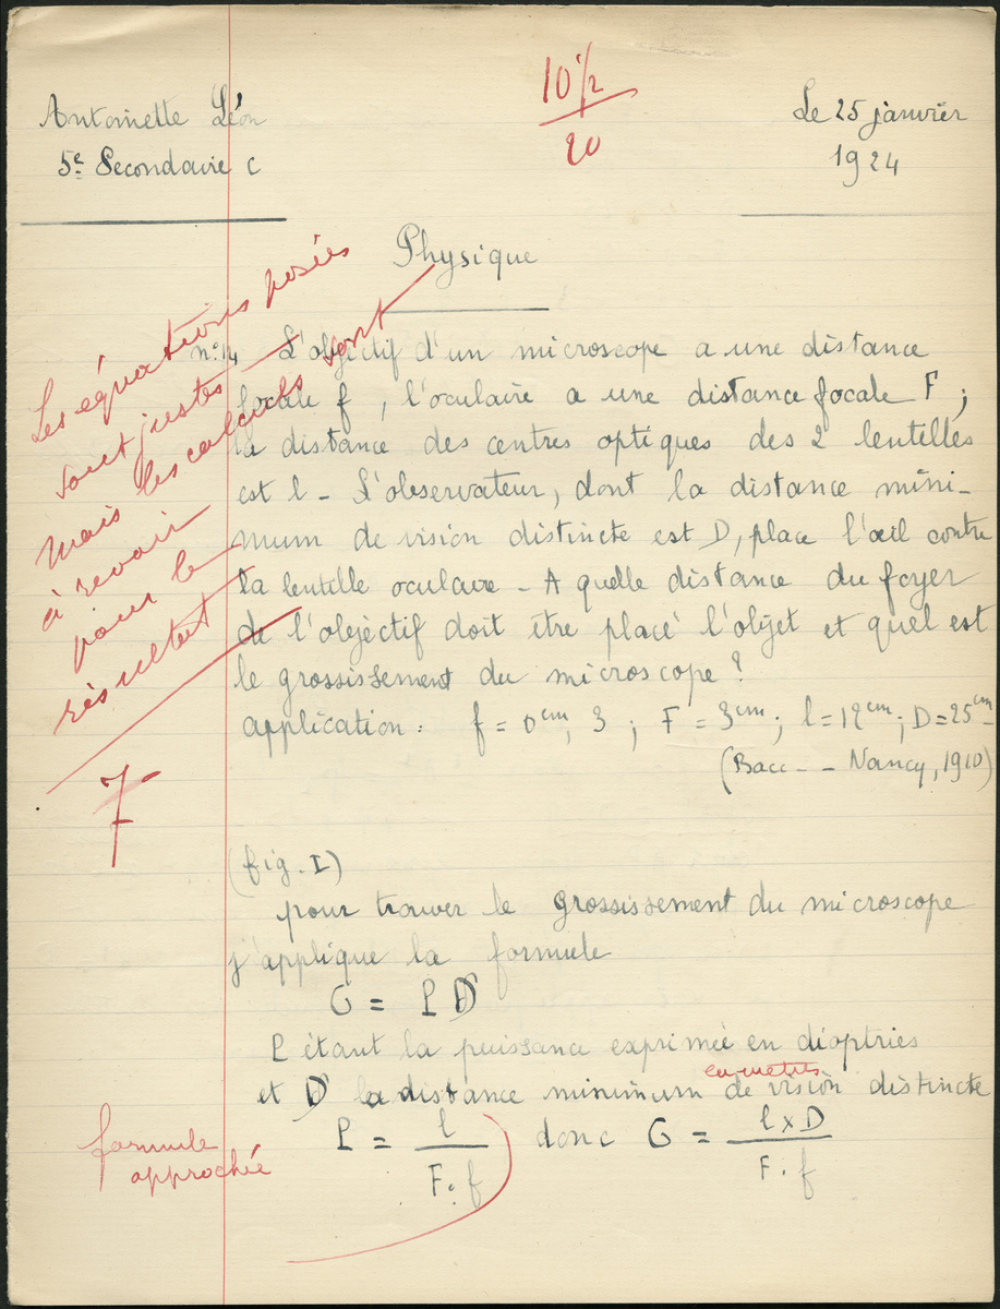 Antoinette Léon
5e Secondaire C
10 1/2
20
Le 25 janvier
1924
Physique
Les équations posées
sont justes
mais les calculs sont
à revoir
pour le
résultat
7
n°14 L'objectif d'un microscope a une distance
focale f, l'oculaire a une distance focale F ;
la distance des centres optiques des 2 lentilles
est l - L'observateur, dont la distance mini-
mum de vision distincte est D, place l'œil contre
la lentille oculaire - A quelle distance du foyer
de l'objectif doit être placé l'objet et quel est
le grossissement du microscope ?
application : f = 0cm, 3 ; F = 3cm ; l = 12cm ; D = 25cm -
(Bacc - - Nancy, 1910)
(fig. I)
pour trouver le grossissement du microscope
j'applique la formule
G = P D
P étant la puissance exprimée en dioptries
en mètres
et D la distance minimum de vision distincte
formule
approchée
P = l / F . f donc G = l x D / F . f